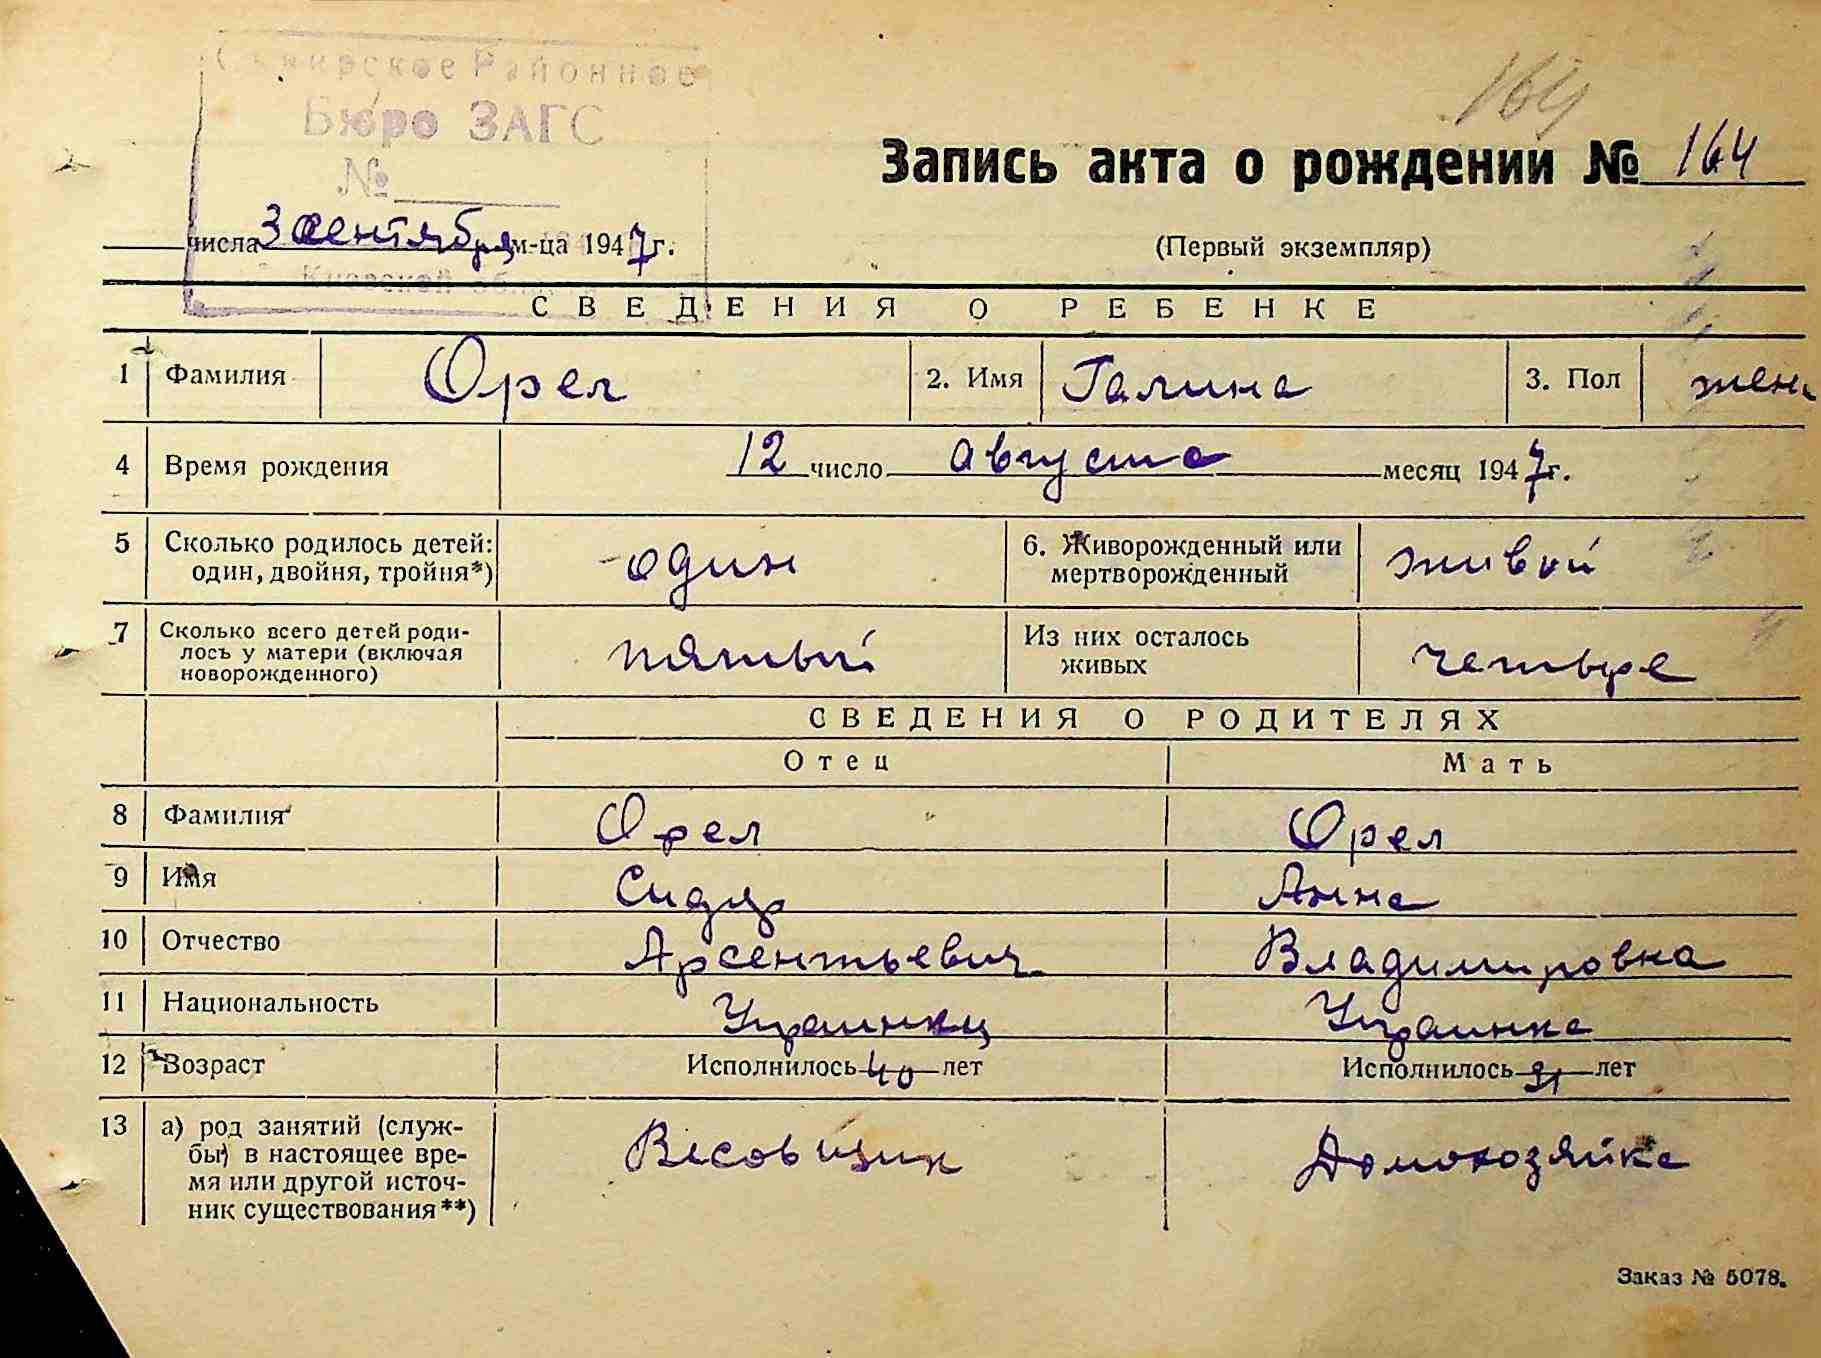 Сквирское Районное
Бюро ЗАГС
№
164
Запись акта о рождении № 164
числа 3 сентября м-ца 1947 г.
(Первый экземпляр)
Киевской области
СВЕДЕНИЯ О РЕБЕНКЕ
1 Фамилия Орел 2. Имя Галина 3. Пол жен.
4 Время рождения 12 число августа месяц 1947 г.
5 Сколько родилось детей: один, двойня, тройня*) один 6. Живорожденный или мертворожденный живой
7 Сколько всего детей роди-
лось у матери (включая
новорожденного) пятый Из них осталось живых четыре
СВЕДЕНИЯ О РОДИТЕЛЯХ
Отец Мать
8 Фамилия Орел Орел
9 Имя Сидор Анна
10 Отчество Арсентьевич Владимировна
11 Национальность Украинец Украинка
12 Возраст Исполнилось 40 лет Исполнилось 31 лет
13 а) род занятий (служ-
бы) в настоящее вре-
мя или другой источ-
ник существования**) Весовщик Домохозяйка
Заказ № 5078.